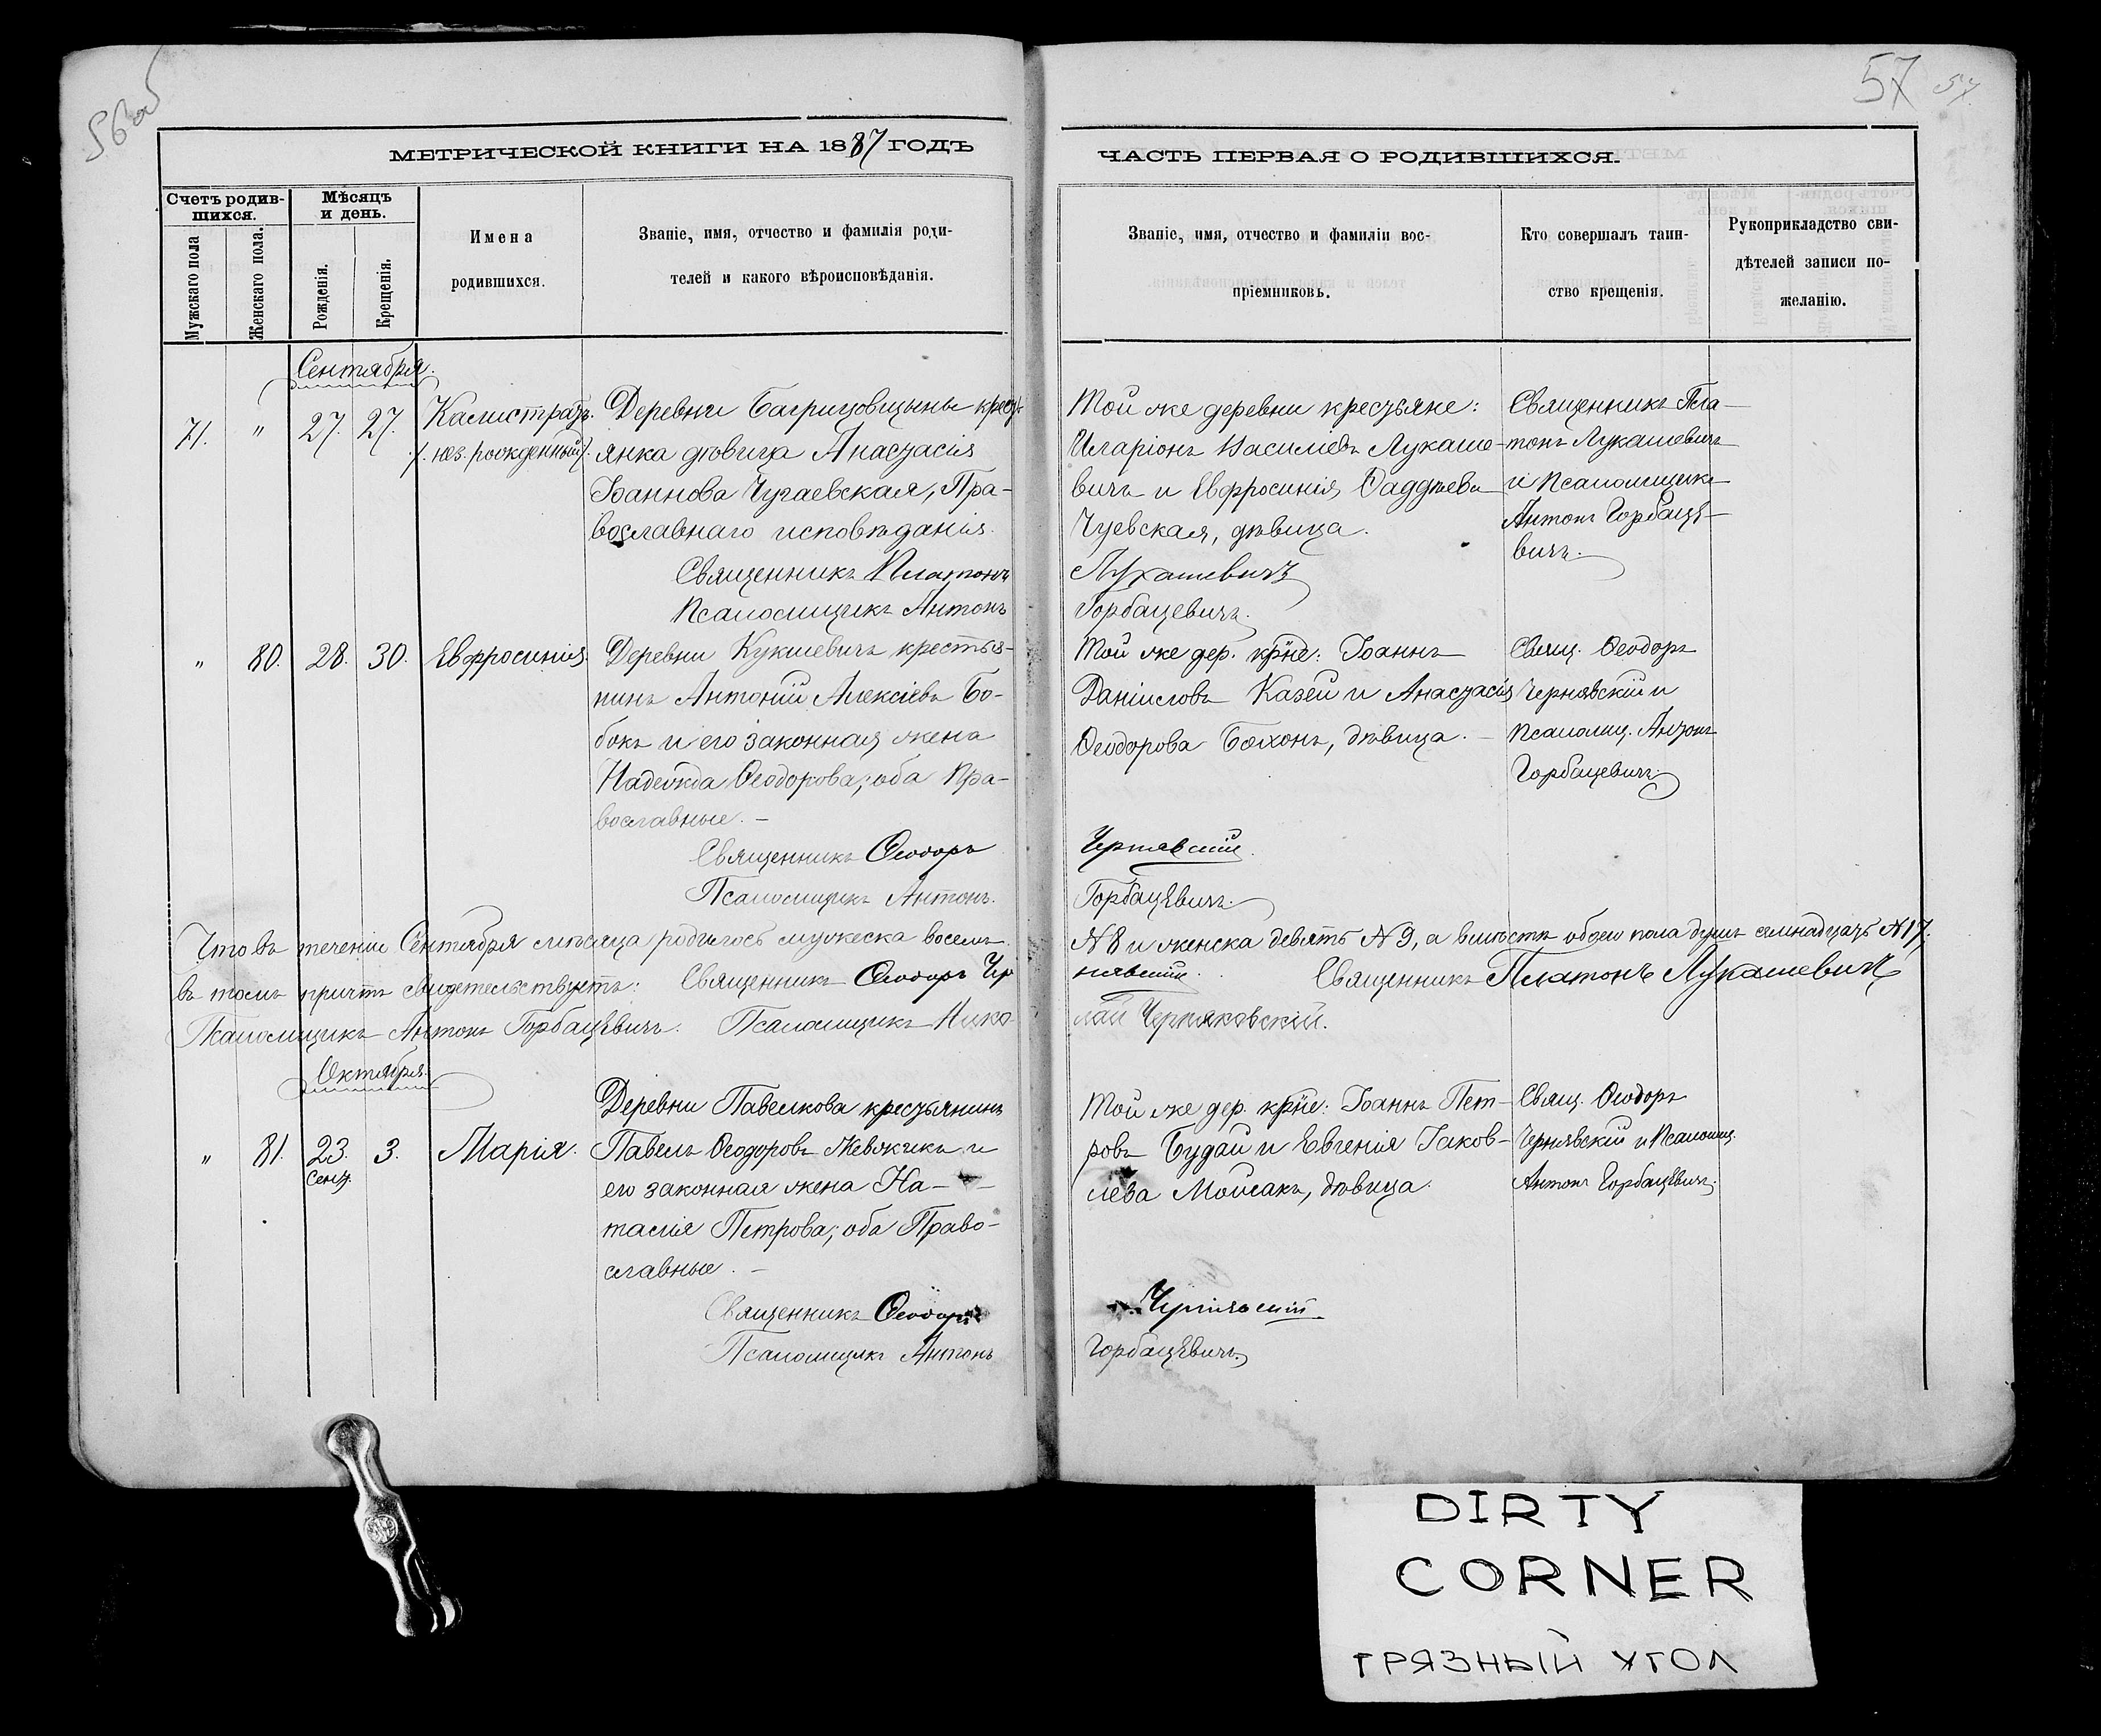 56об
57
57
МЕТРИЧЕСКОЙ КНИГИ НА 1887 ГОДЪ
ЧАСТЬ ПЕРВАЯ О РОДИВШИХСЯ.
Счетъ родив-
шихся.
Мужскаго пола
Женскаго пола.
Мѣсяцъ
и день.
Рожденія.
Крещенія.
Имена
родившихся.
Званіе, имя, отчество и фамилія роди-
телей и какого вѣроисповѣданія.
Званіе, имя, отчество и фамиліи вос-
пріемниковъ.
Кто совершалъ таин-
ство крещенія.
Рукоприкладство сви-
дѣтелей записи по-
желанію.
Сентября.
71.
"
27.
27.
Калистратъ.
/. нез. рожденный/.
Деревни Багрицовщины кресть
янка дѣвица Анастасія
Іоаннова Чугаевская, Пра-
вославнаго исповѣданія.
Священникъ Платонъ
Псаломщикъ Антонъ
Той же деревни крестьяне:
Иларіонъ Василіевъ Лукаше-
вичъ и Евфросинія Ѳаддѣева
Чуевская, дѣвица.
Лукашевичъ
Горбацевичъ.
Священникъ Пла-
тонъ Лукашевичъ
и Псаломщикъ
Антонъ Горбаце-
вичъ.
"
80.
28.
30.
Евфросинія.
Деревни Кукшевичъ крестья-
нинъ Антоній Алексіевъ Бо-
бокъ и его законная жена
Надежда Ѳеодорова; оба Пра-
вославные. -
Священникъ Ѳеодоръ
Псаломщикъ Антонъ.
Той же дер. крне: Іоаннъ
Даніиловъ Казей и Анастасія
Ѳеодорова Боханъ, дѣвица. -
Чернявскій.
Горбацевичъ.
Свящ. Ѳеодоръ
Чернявскій и
Псаломщ. Антонъ
Горбацевичъ.
Что въ теченіи Сентября мѣсяца родилось мужеска восемь
№ 8 и женска девять № 9, а вмѣстѣ обоего пола душъ семнадцать № 17.
въ томъ причтъ свидетельствуетъ: Священникъ Ѳеодоръ Чер
нявскій. Священникъ Платонъ Лукашевичъ
Псаломщикъ Антонъ Горбацевичъ. Псаломщикъ Нико-
лай Черняковскій.
Октября.
"
81.
23.
Сент.
3.
Марія.
Деревни Павелкова крестьянинъ
Павелъ Ѳеодоровъ Жевжикъ и
его законная жена На-
талія Петрова; оба Право-
славные. -
Священникъ Ѳеодоръ
Псаломщикъ Антонъ
Той же дер. крне: Іоаннъ Пет-
ровъ Будай и Евгенія Іаков-
лева Мойсакъ, дѣвица.
Чернявскій
Горбацевичъ.
Свящ. Ѳеодоръ
Чернявскій и Псаломщ.
Антонъ Горбацевичъ.
DIRTY
CORNER
ГРЯЗНЫЙ УГОЛ